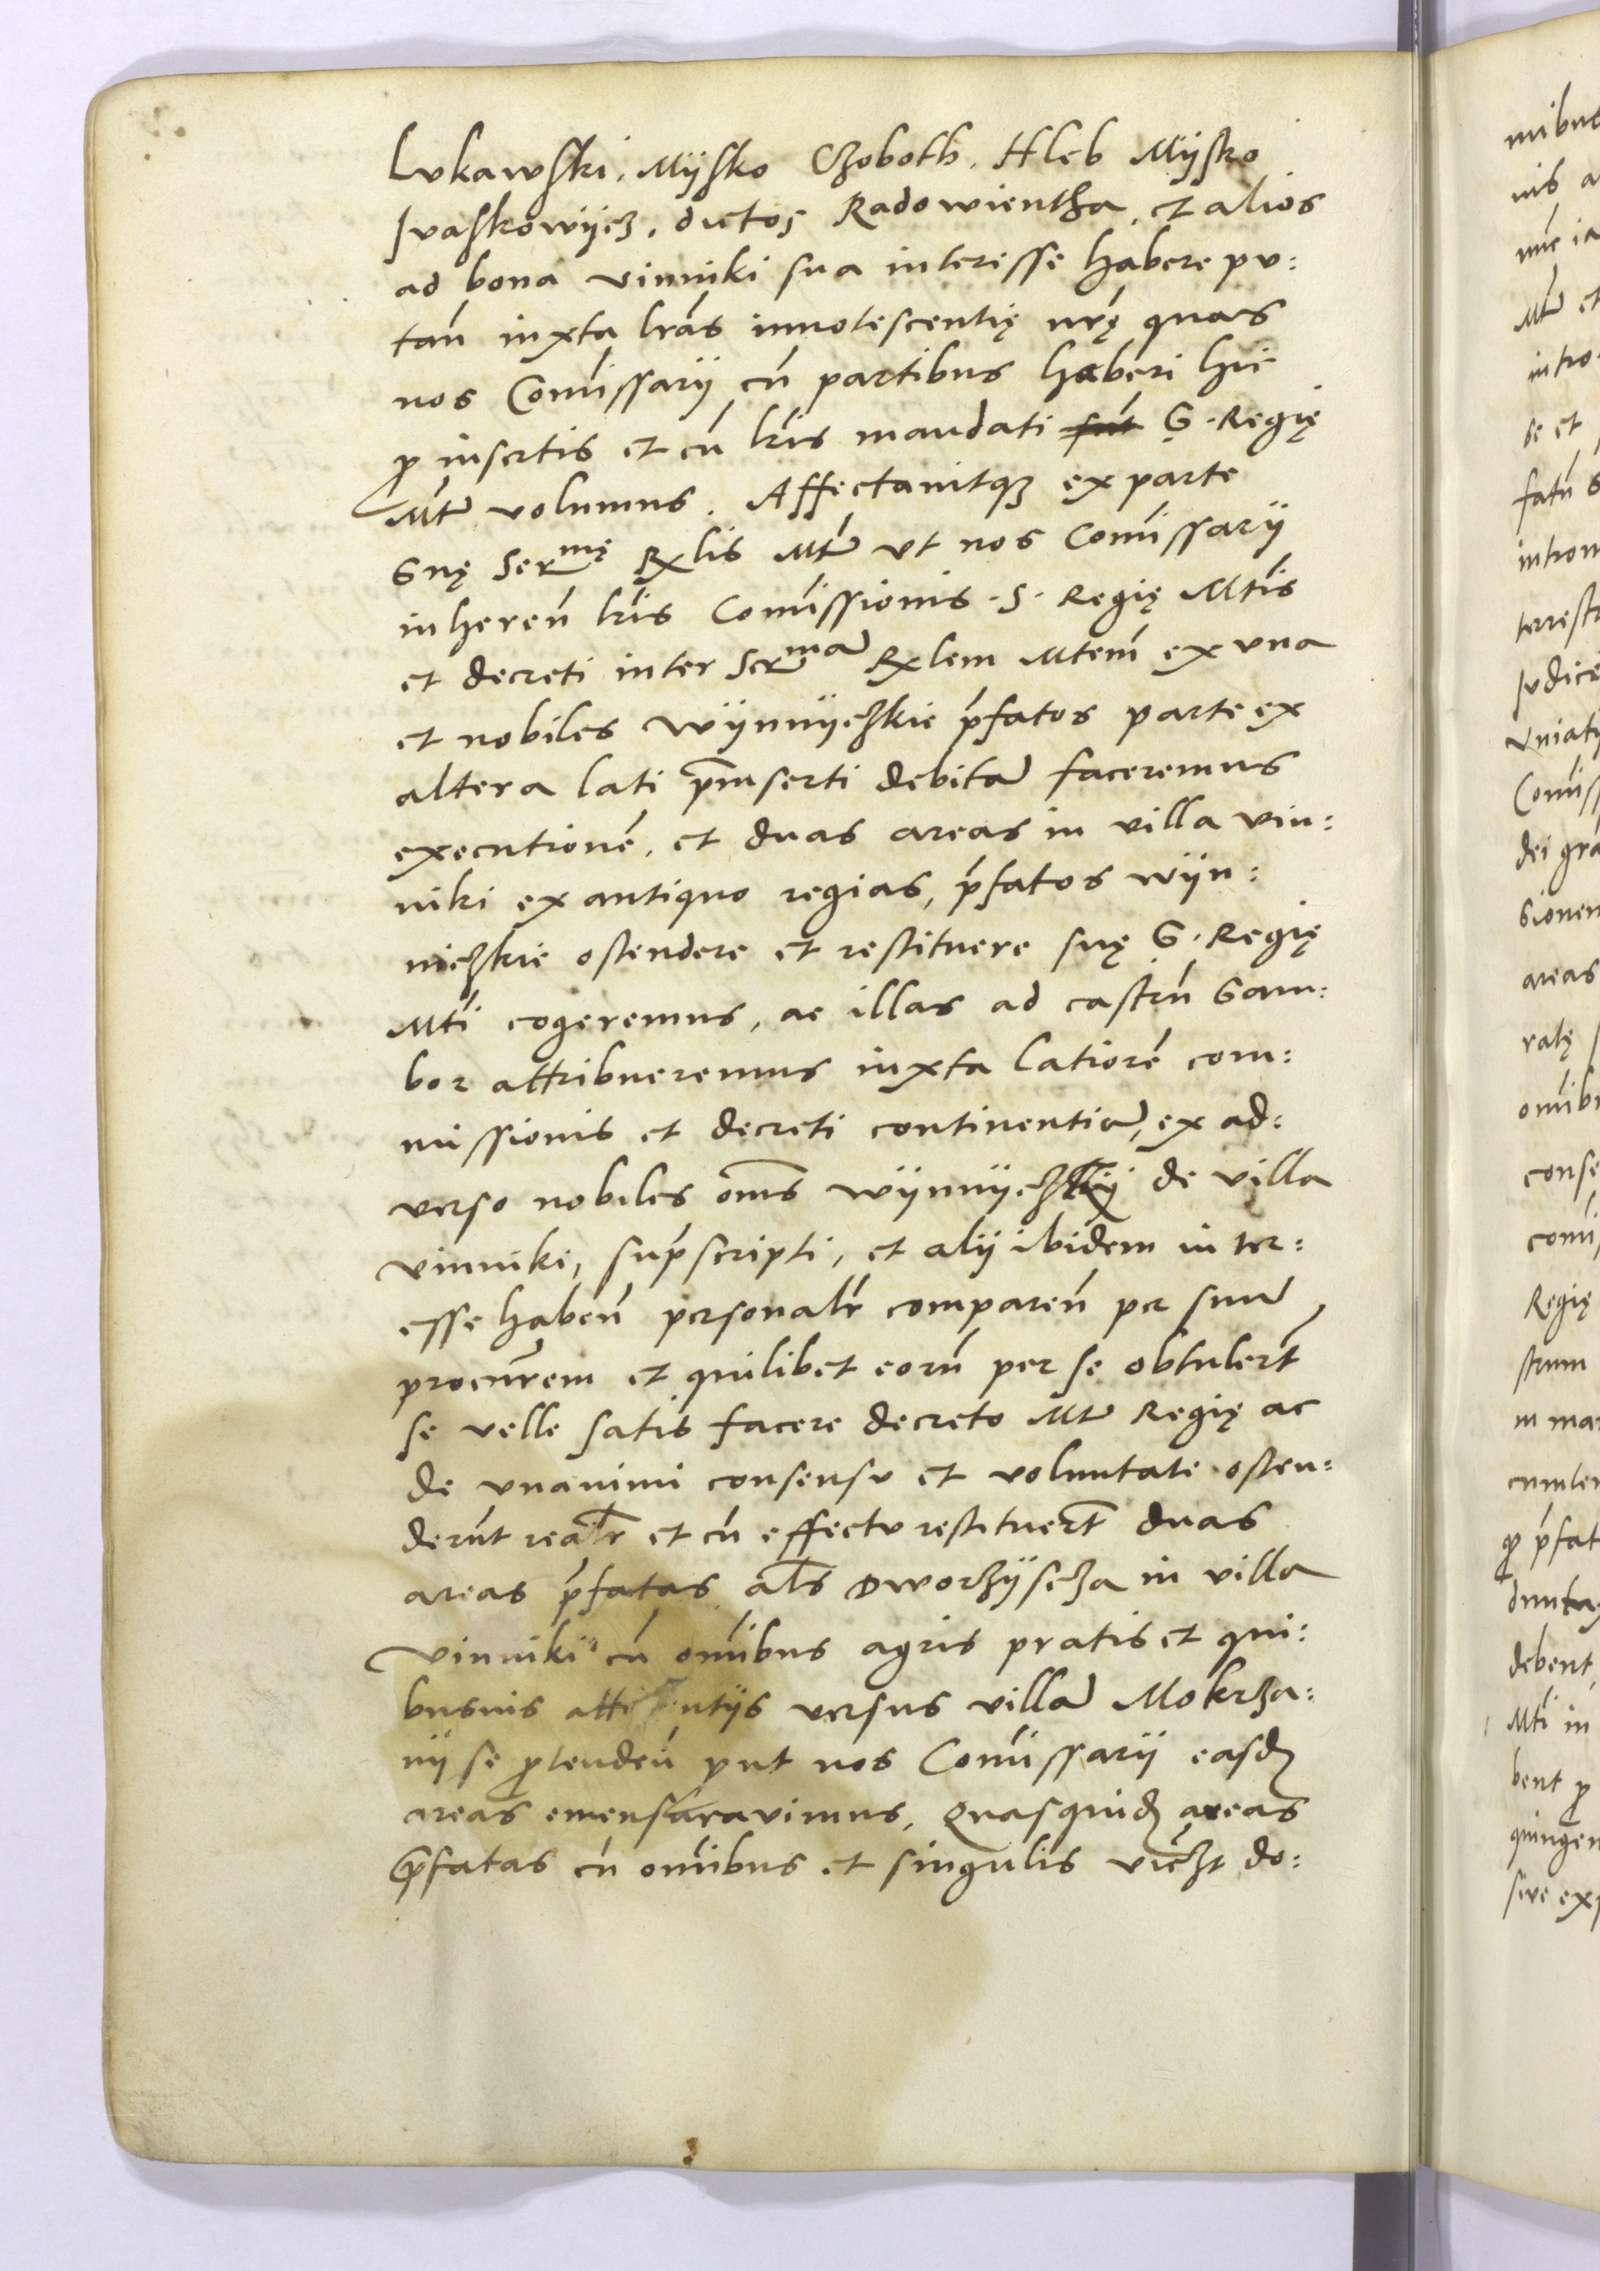 Lukawski. Mijsko Czoboth. Hleb Mijsko
Ivaskowijcz. dictos Radowientha. et alios
ad bona vinniki sua interesse habere pu:
tan̄ iuxta lrās innotescentię nrę quas
nos Com̄issarij cū partibus haberi hic
ꝓ insertis et cū lris mandati S. Regię
Mtis volumus. Affectavitqꝫ ex parte
Suę Serᵐę Rxlis Mtis ut nos Com̄issarij
inheren̄ lris Com̄issionis. S. Regię Mtis
et decreti inter Serᵐā Rxlem Mtem̄ ex una
et nobiles wijnnijczkie p̄fatos parte ex
altera lati p̄inserti debitā faceremus
executionē. et duas areas in villa vin:
niki ex antiquo regias, p̄fatos wijn:
niczkie ostendere et restituere suę S. Regię
Mti cogeremus, ac illas ad castrū Sam:
bor attribueremus iuxta latiorē com:
missionis et decreti continentiā, ex ad:
verso nobiles om̄s wijnnijczkij de villa
vinniki, sup̄scripti, et alij ibidem inter:
esse haben̄ personalr̄ comparen̄ per suū
procur̄em et quilibet eorū per se obtulerūt
se velle satis facere decreto Mtis Regię ac
de unanimi consensu et voluntate osten:
derūnt realr̄ et cū effectu restituerūt duas
areas p̄fatas als Dworzijscza in villa
vinniki cū om̄ibus agris pratis et qui:
busvis attinentijs versus villā Mokrza:
nij se ꝓtenden̄ put nos Com̄issarij easdꝫ
areas emensuravimus. Quasquidꝫ areas
p̄fatas cū om̄ibus et singulis vīczt do:

nis a
se et
intro
areas
Regię
strum
debent
Mti in
bent ꝓ